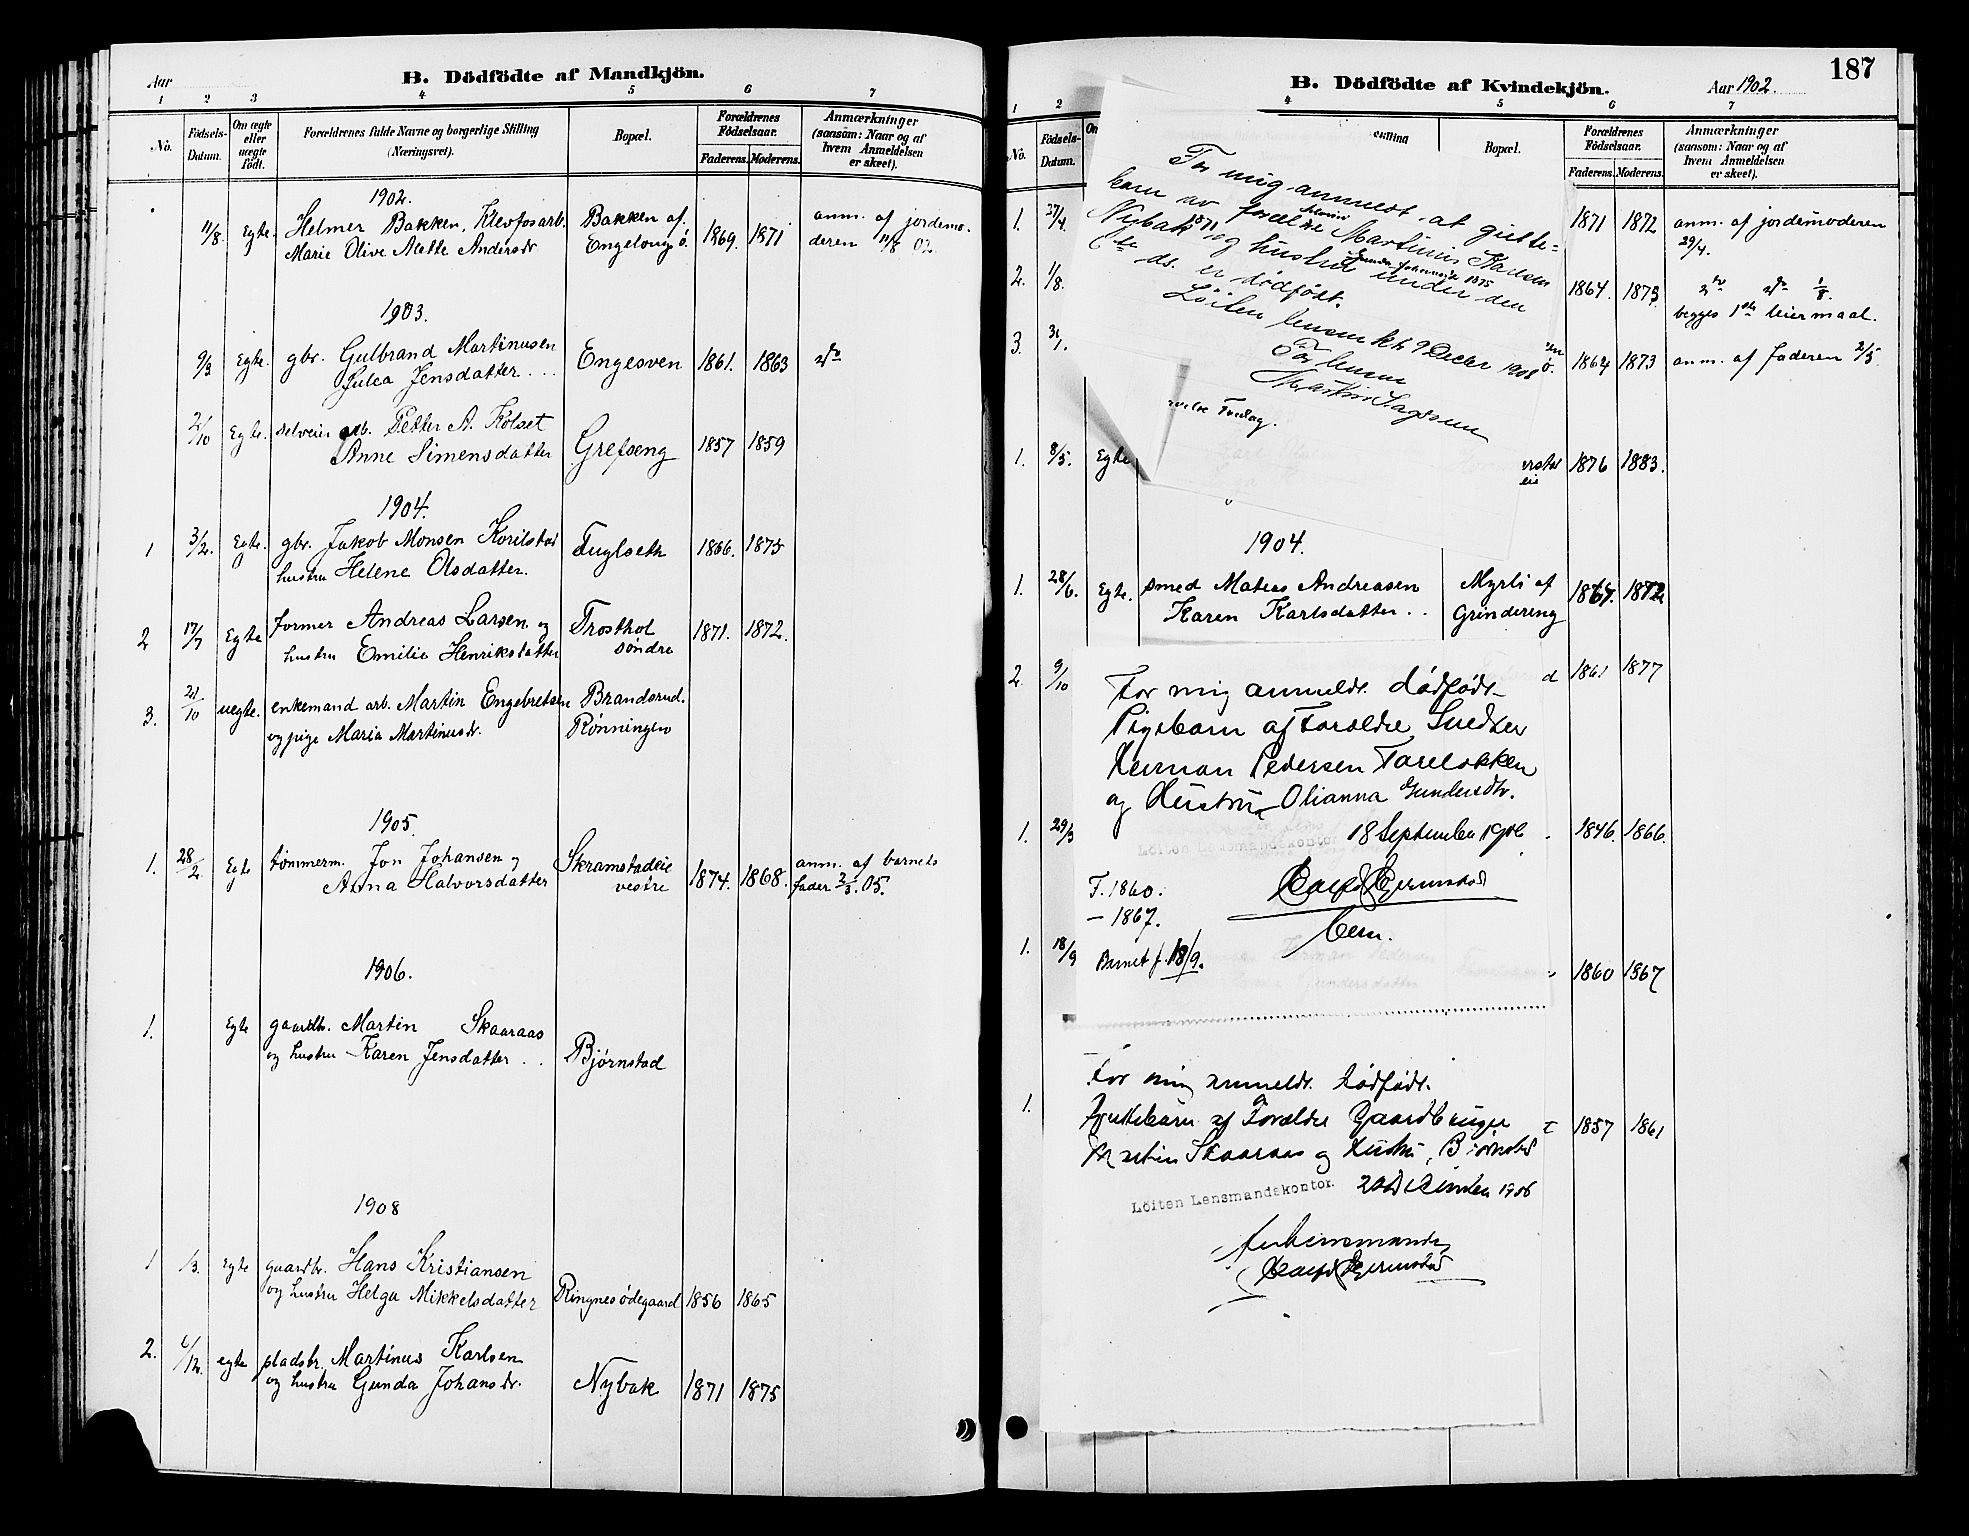 Aar
B. Dödfödte af Mandkjön.
1 2 3 4 5 6 7
No.
Födsels-Datum.
Om ægte eller uægte födt.
Forældrenes fulde Navne og borgerlige Stilling (Næringsvei).
Bopæl.
Forældrenes Födselsaar.
Faderens. Moderens.
Anmærkninger (saasom: Naar og af hvem Anmeldelsen er skeet).
1902.
11/8. Egte. Helmer Bakken, Klevfosarb. Bakken af 1869. 1871 anm. af jordemo-
Marie Olive Mette Andersdr Engelaug ö. deren 11/8 02
1903.
9/3 Egte. gbr. Gulbrand Martinusen Engesven 1861. 1863 do
Julea Jensdatter
2/10 Egte. selveier arb. Petter A. Kolset Grefseng 1857 1859
Anne Simensdatter
1904.
1 3/2. Egte. gbr. Jakob Monsen Korilstad Fuglseth 1866. 1875
hustru Helene Olsdatter.
2 17/7 Egte former Andreas Larsen og Trosthol 1871. 1872.
hustru Emilie Henriksdatter søndre
3. 21/10 uegte. enkemand arb. Martin Engebretsen Brandsrud.
og pige Maria Martinusdr. Rønningen
1905.
1. 28/2 Egte tømmerm. Jon Johansen og Skramstadeie 1874. 1868. anm. af barnets
Anna Halvorsdatter vestre fader 2/3. 05.
1906.
1. Egte gaardbr. Martin Skaaraas
og hustru Karen Jensdatter Bjørnstad
1908
1 1/3. Egte gaardbr. Hans Kristiansen
og hustru Helga Mikkelsdatter Ringnes ødegaard 1856 1865
2. 6/12. egte pladsbr. Martinus Karlsen
og hustru Gunda Johansdr. Nybak 1871 1875
187
B. Dödfödte af Kvindekjön. Aar 1902.
1 2 4 5 6 7
No.
Födsels-Datum.
Om
Stilling
Bopæl.
Forældrenes Födselsaar.
Faderens. Moderens.
Anmærkninger (saasom: Naar og af hvem Anmeldelsen er skeet).
For mig anmeldt at gutte-
barn av forældre Martinus Karlsen
Nybak 1871 og hustru Gunda Johansdr 1875 under den
6te ds. er dødfødt.
Löiten lensm.kt. 9 Decbr 1908
For lensm
1. 27/4. 1871 1872 anm. af jordemoderen
29/4.
2. 1/8. 1864. 1873. do do 1/8.
begges 1ste leiermaal.
3. 31/1. 1864 1873 anm. af faderen 2/5
Fredag.
1. 8/5. Egte 1876 1883.
1904.
1. 28/6. Egte. smed Mateas Andreasen Myrli af 1867. 1872
Karen Karlsdatter Grindereng
2. 9/10 d 1861 1877
For mig anmeldt dødfødt
Pigebarn af Forældre Snedker
Herman Pedersen Farelokken
og Hustru Olianna Gundersdtr.
18 September 1906
Löiten Lensmandskontor
F. 1860.
— 1867.
Barnet f. 18/9.
1. 29/3 1846. 1866.
1. 18/9 1860 1867
For mig anmeldt dødfødt
Guttebarn af Forældre Gaardbruger
Martin Skaaraas og Hustru, Bjørnstad
Löiten Lensmandskontor. 22 December 1906
for Lensmanden
1. 1857 1861